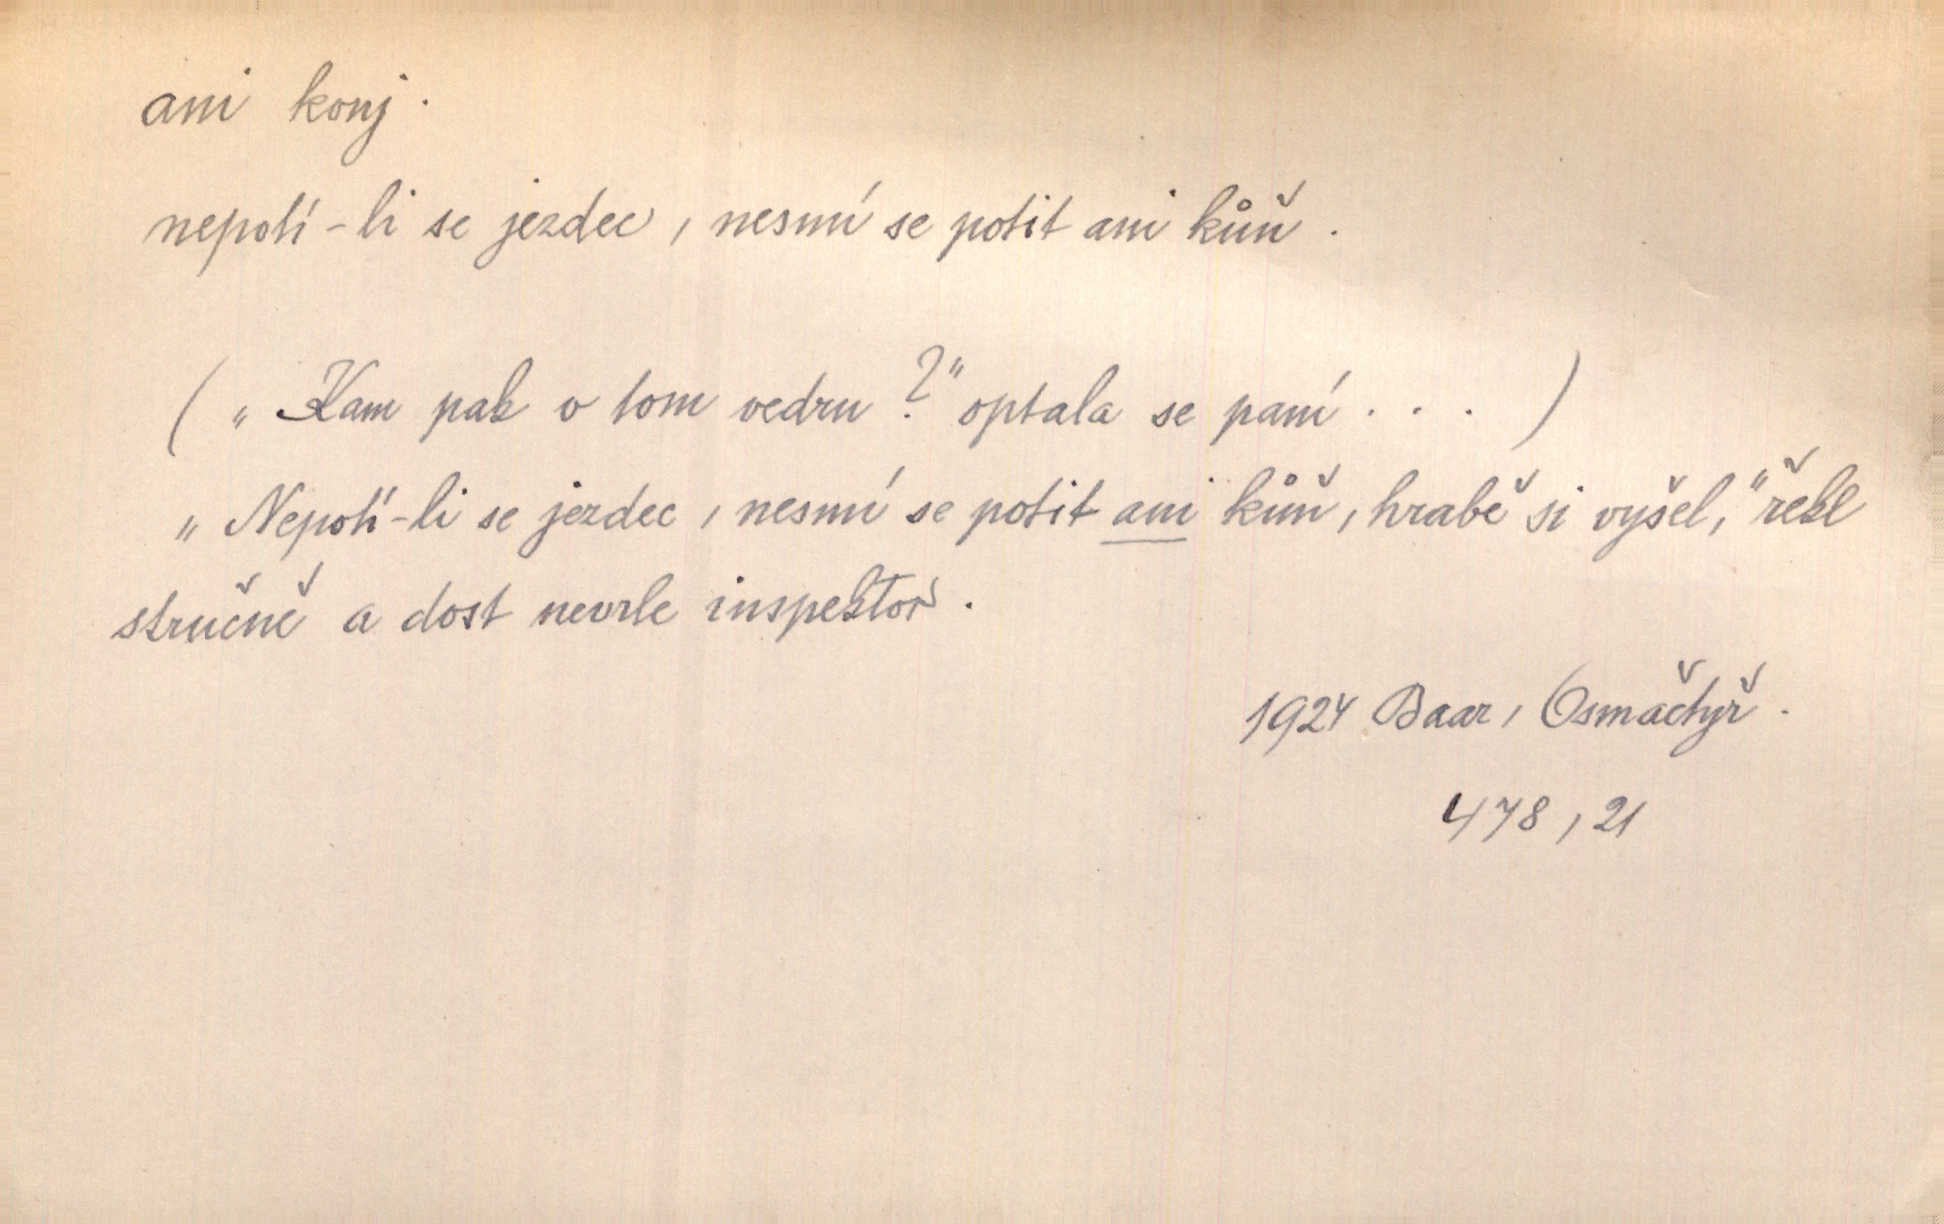 ani konj.
nepotí-li se jezdec, nesmí se potit ani kůň.
(„Kam pak v tom vedru?" optala se paní . . . )
„Nepotí-li se jezdec, nesmí se potit ani kůň, hrabě si vyšel," řekl
stručně a dost nevrle inspektor.
1924 Baar, Osmačtyř.
478, 21